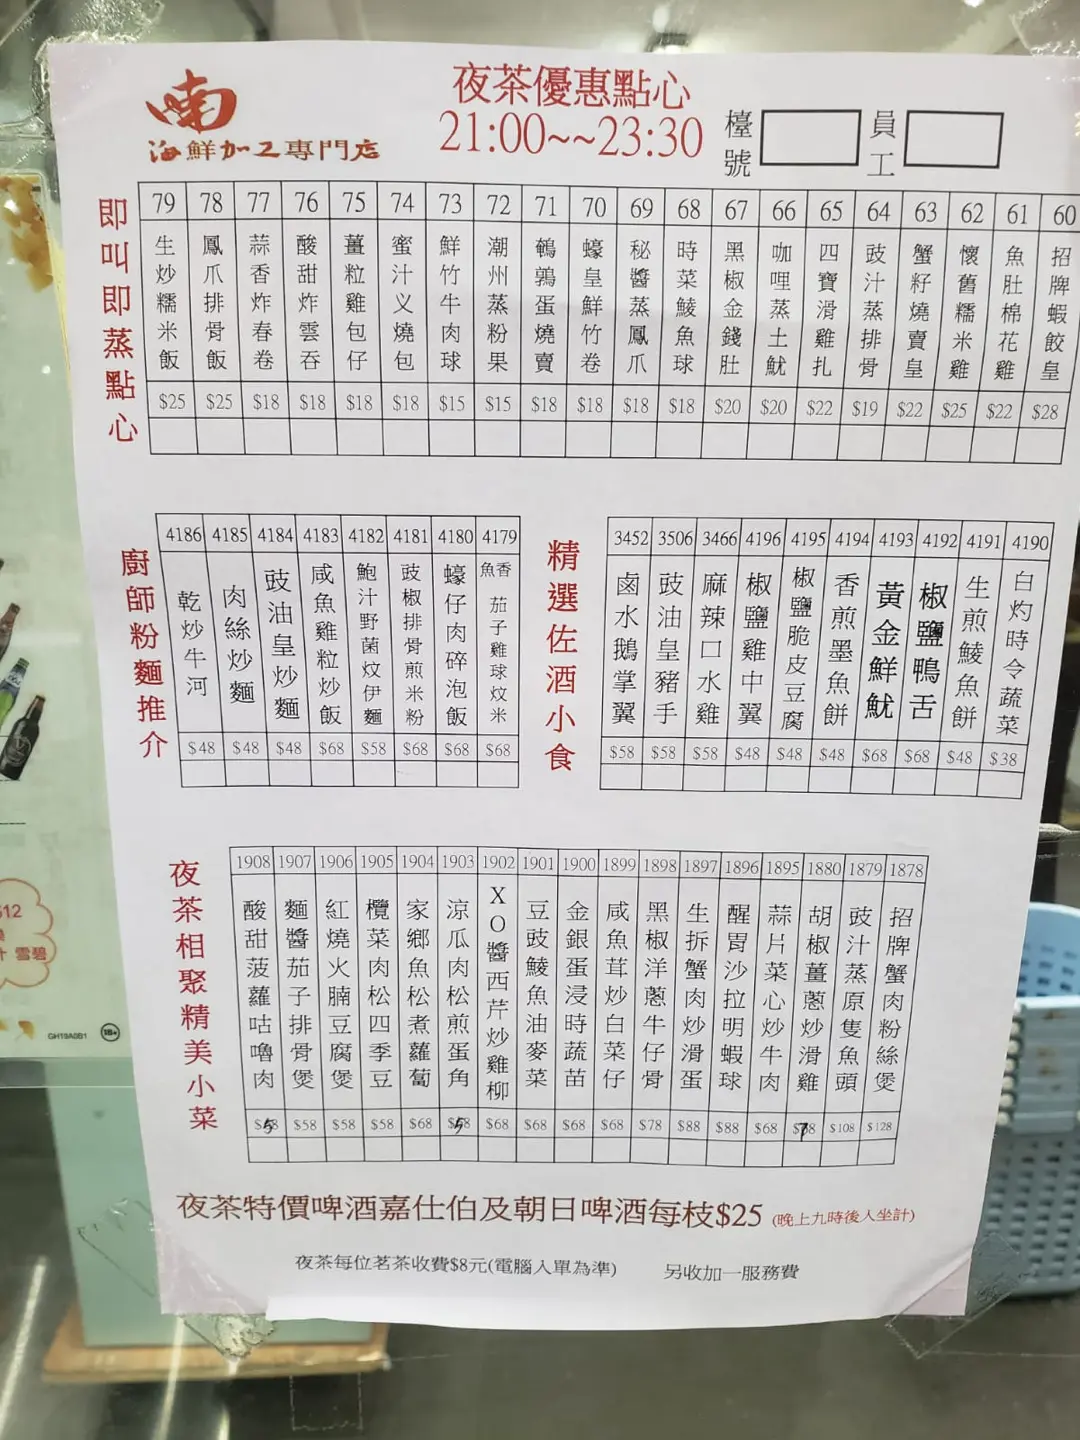 夜茶優惠點心
21:00~~23:30
喃
海鮮加工專門店
檯號
員工
即叫即蒸點心
79 78 77 76 75 74 73 72 71 70 69 68 67 66 65 64 63 62 61 60
生炒糯米飯
鳳爪排骨飯
蒜香炸春卷
酸甜炸雲吞
薑粒雞包仔
蜜汁义燒包
鮮竹牛肉球
潮州蒸粉果
鵪鶉蛋燒賣
蠔皇鮮竹卷
秘醬蒸鳳爪
時菜鯪魚球
黑椒金錢肚
咖哩蒸土魷
四寶滑雞扎
豉汁蒸排骨
蟹籽燒賣皇
懷舊糯米雞
魚肚棉花雞
招牌蝦餃皇
$25 $25 $18 $18 $18 $18 $15 $15 $18 $18 $18 $18 $20 $20 $22 $19 $22 $25 $22 $28
廚師粉麵推介
4186 4185 4184 4183 4182 4181 4180 4179
乾炒牛河
肉絲炒麵
豉油皇炒麵
咸魚雞粒炒飯
鮑汁野菌炆伊麵
豉椒排骨煎米粉
蠔仔肉碎泡飯
魚香茄子雞球炆米
$48 $48 $48 $68 $58 $68 $68 $68
精選佐酒小食
3452 3506 3466 4196 4195 4194 4193 4192 4191 4190
鹵水鵝掌翼
豉油皇豬手
麻辣口水雞
椒鹽雞中翼
椒鹽脆皮豆腐
香煎墨魚餅
黃金鮮魷
椒鹽鴨舌
生煎鯪魚餅
白灼時令蔬菜
$58 $58 $58 $48 $48 $48 $68 $68 $48 $38
夜茶相聚精美小菜
1908 1907 1906 1905 1904 1903 1902 1901 1900 1899 1898 1897 1896 1895 1880 1879 1878
酸甜菠蘿咕嚕肉
麵醬茄子排骨煲
紅燒火腩豆腐煲
欖菜肉松四季豆
家鄉魚松煮蘿蔔
涼瓜肉松煎蛋角
XO醬西芹炒雞柳
豆豉鯪魚油麥菜
金銀蛋浸時蔬苗
咸魚茸炒白菜仔
黑椒洋蔥牛仔骨
生拆蟹肉炒滑蛋
醒胃沙拉明蝦球
蒜片菜心炒牛肉
胡椒薑蔥炒滑雞
豉汁蒸原隻魚頭
招牌蟹肉粉絲煲
$58 $58 $58 $58 $68 $58 $68 $68 $68 $68 $78 $88 $88 $68 $78 $108 $128
夜茶特價啤酒嘉仕伯及朝日啤酒每枝$25 (晚上九時後人坐計)
夜茶每位茗茶收費$8元(電腦入單為準) 另收加一服務費
雪碧
GH19A0B1
18+